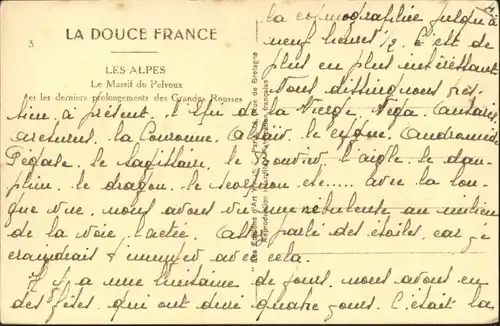 LA DOUCE FRANCE
3
LES ALPES
Le Massif du Pelvoux
et les derniers prolongements des Grandes Rousses
la cosmographie jusqu'à
neuf heures 1/2. C'est de
plus en plus intéressant
Nous distinguons très
bien à présent. l'Epi de la Vierge. Vega. Antares.
arcturus. la Couronne. Altaïr. le cygne. Andromède
Pégase. le sagittaire. le Bouvier. l'aigle. le dau-
phin. le dragon. le scorpion etc..... avec la lon-
gue vue. nous avons vu une nébuleuse au milieu
de la voie lactée. parlé des étoiles. car je
craindrais t'ennuyer avec cela.
Il y a une huitaine de jours. nous avons eu
des fêtes. qui ont duré quatre jours. C'était la